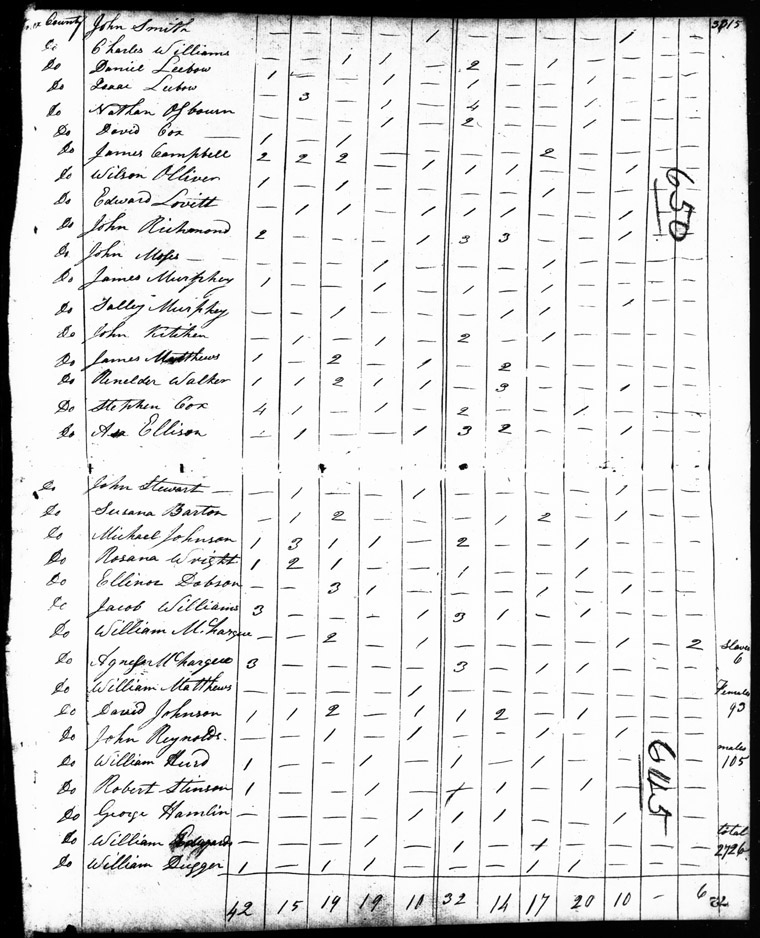 County John Smith — — — — 1 — — — — 1 — —
Do Charles Williams — — 1 1 — — — — — — —
Do Daniel Leebow 1 — — — — 2 — 1 — — —
Do Isaac Leebow — 3 — 1 — 1 — — 1 — — —
Do Nathan Ogbourn — — — 1 — 4 — — 1 — — —
Do David Cox — 1 — 1 — — 2 — — 1 — — —
Do James Campbell 2 2 2 — — — — 2 — — — —
Do Wilson Olliver 1 — 1 — 1 1 1 — — 1 — —
Do Edward Lovitt — 1 1 — 1 1 1 — — 1 — —
Do John Richmond 2 — — — 1 3 3 — — 1 — —
Do John Moses — — — — 1 — — — 1 — — — —
Do James Murphey 1 — — 1 — 1 — 1 — — — —
Do Salley Murphey — — 1 — — — 1 1 — 1 — —
Do John Kitchen — 1 — 1 — 2 — 1 — — — —
Do James Matthews 1 — 2 — 1 — 2 — — — — —
Do Renelder Walker 1 1 2 1 1 — 3 — — 1 — —
Do Stephen Cox 4 1 — 1 — 2 — — 1 — — —
Do Asa Ellison — 1 — — 1 3 2 — — 1 — —
650
Do John Stewart — — 1 — — 1 — — — — 1 — —
Do Susana Barton — 1 2 — — — 1 2 — 1 — —
Do Michael Johnson 1 3 1 1 — 2 — — 1 — — —
Do Rosana Wright 1 2 1 — — 1 — — 1 — — —
Do Ellinor Dobson — — 3 1 — — — 1 — 1 — —
Do Jacob Williams 3 — — — 1 3 1 — 1 — — —
Do William McHargue — — 2 — 1 — — — — 1 — 2
Slaves
6
Do Agness McHargue 3 — — — — 3 — 1 1 — — —
Do William Matthews — — — — 1 — — — — — — —
Females
93
Do David Johnson 1 1 2 — 1 1 2 — 1 — — —
Do John Reynolds — — 1 — 1 — 1 1 — 1 — —
males
105
Do William Hurd 1 — — 1 — 1 — 1 — — — —
Do Robert Stinson 1 — — — 1 1 — 1 — —
Do George Hamlin — — — 1 1 1 1 — — 1 — —
645
Do William — — — 1 — 1 — — — — —
total
2726
Do William Dugger 1 — 1 1 — — — 1 1 — — —
42 15 19 19 18 32 14 17 20 10 — 6